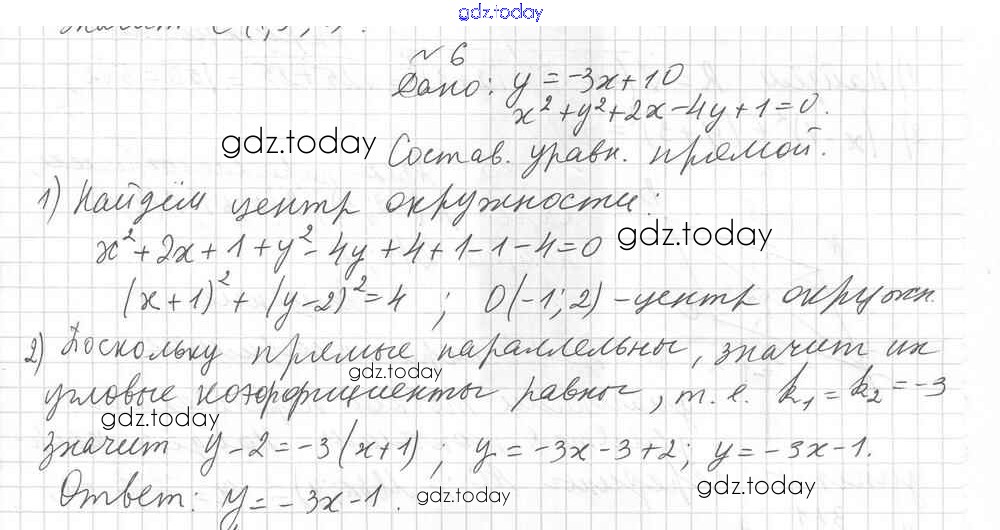 gdz.today
№ 6
Дано: y = -3x + 10
x² + y² + 2x - 4y + 1 = 0.
gdz.today
Состав. уравн. прямой.
1) Найдём центр окружности:
x² + 2x + 1 + y² - 4y + 4 + 1 - 1 - 4 = 0 gdz.today
(x + 1)² + (y - 2)² = 4 ; O(-1; 2) - центр окружн.
2) Поскольку прямые параллельны, значит их
gdz.today
угловые коэффициенты равны, т. е. k₁ = k₂ = -3
gdz.today
значит y - 2 = -3(x + 1) ; y = -3x - 3 + 2; y = -3x - 1.
Ответ: y = -3x - 1. gdz.today gdz.today